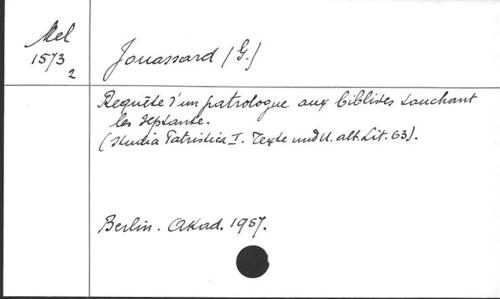 Mel
1573
2
Jouassard (G.)
Requête d'un patrologue aux biblistes touchant
les Septante.
(Studia Patristica I. Texte und U. alt. Lit. 63).
Berlin. Akad. 1957.